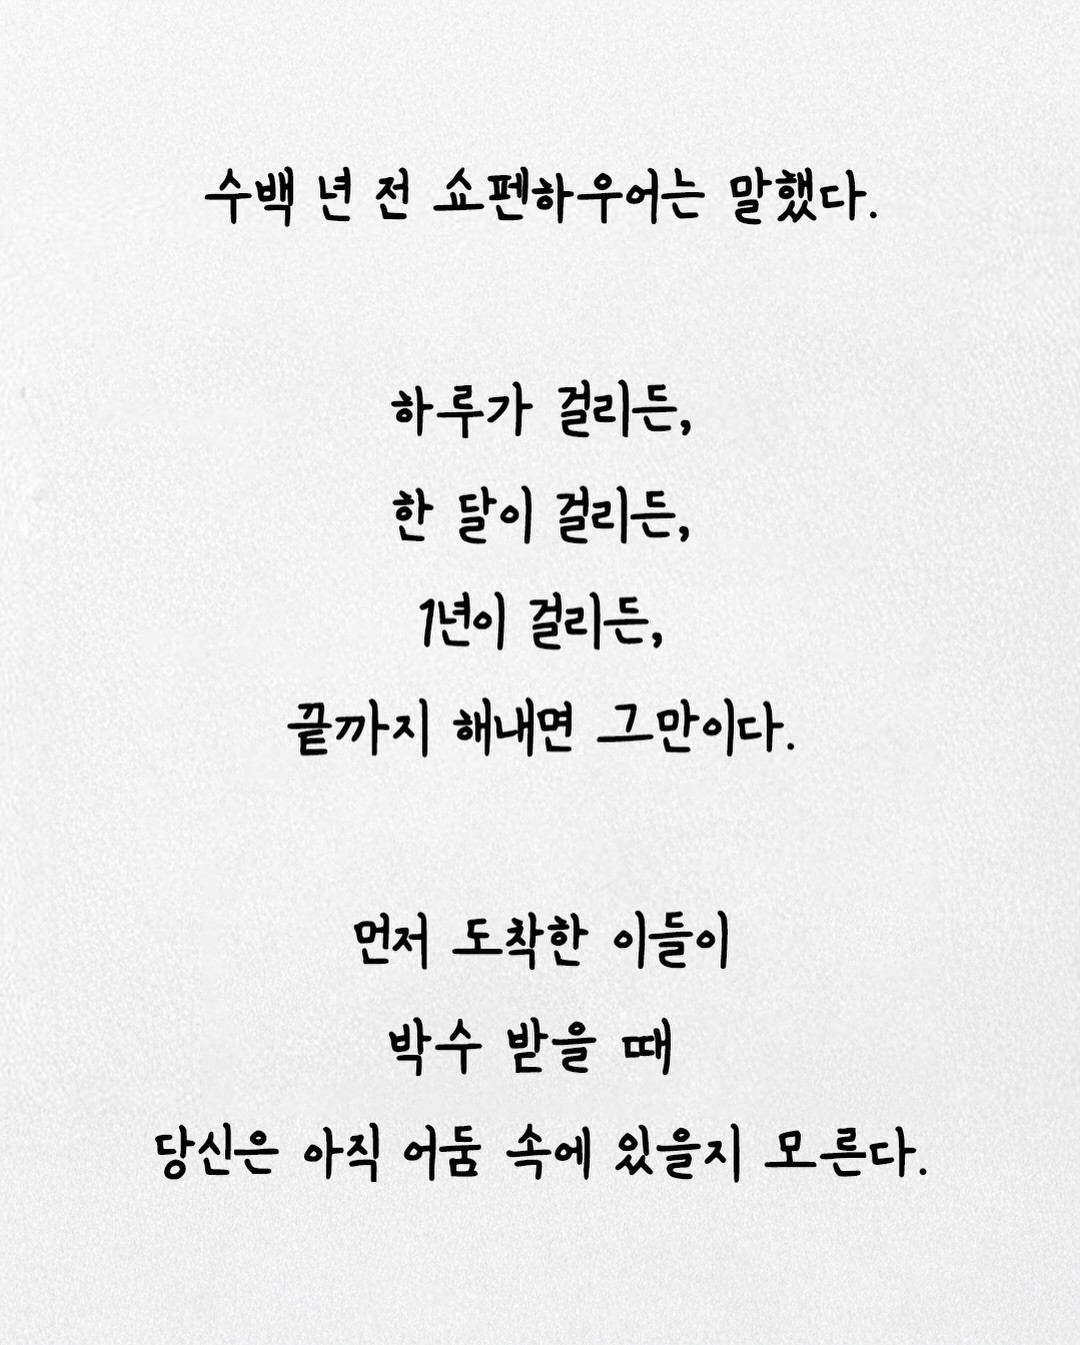 수백 년 전 쇼펜하우어는 말했다.
하루가 걸리든,
한 달이 걸리든,
1년이 걸리든,
끝까지 해내면 그만이다.
먼저 도착한 이들이
박수 받을 때
당신은 아직 어둠 속에 있을지 모른다.